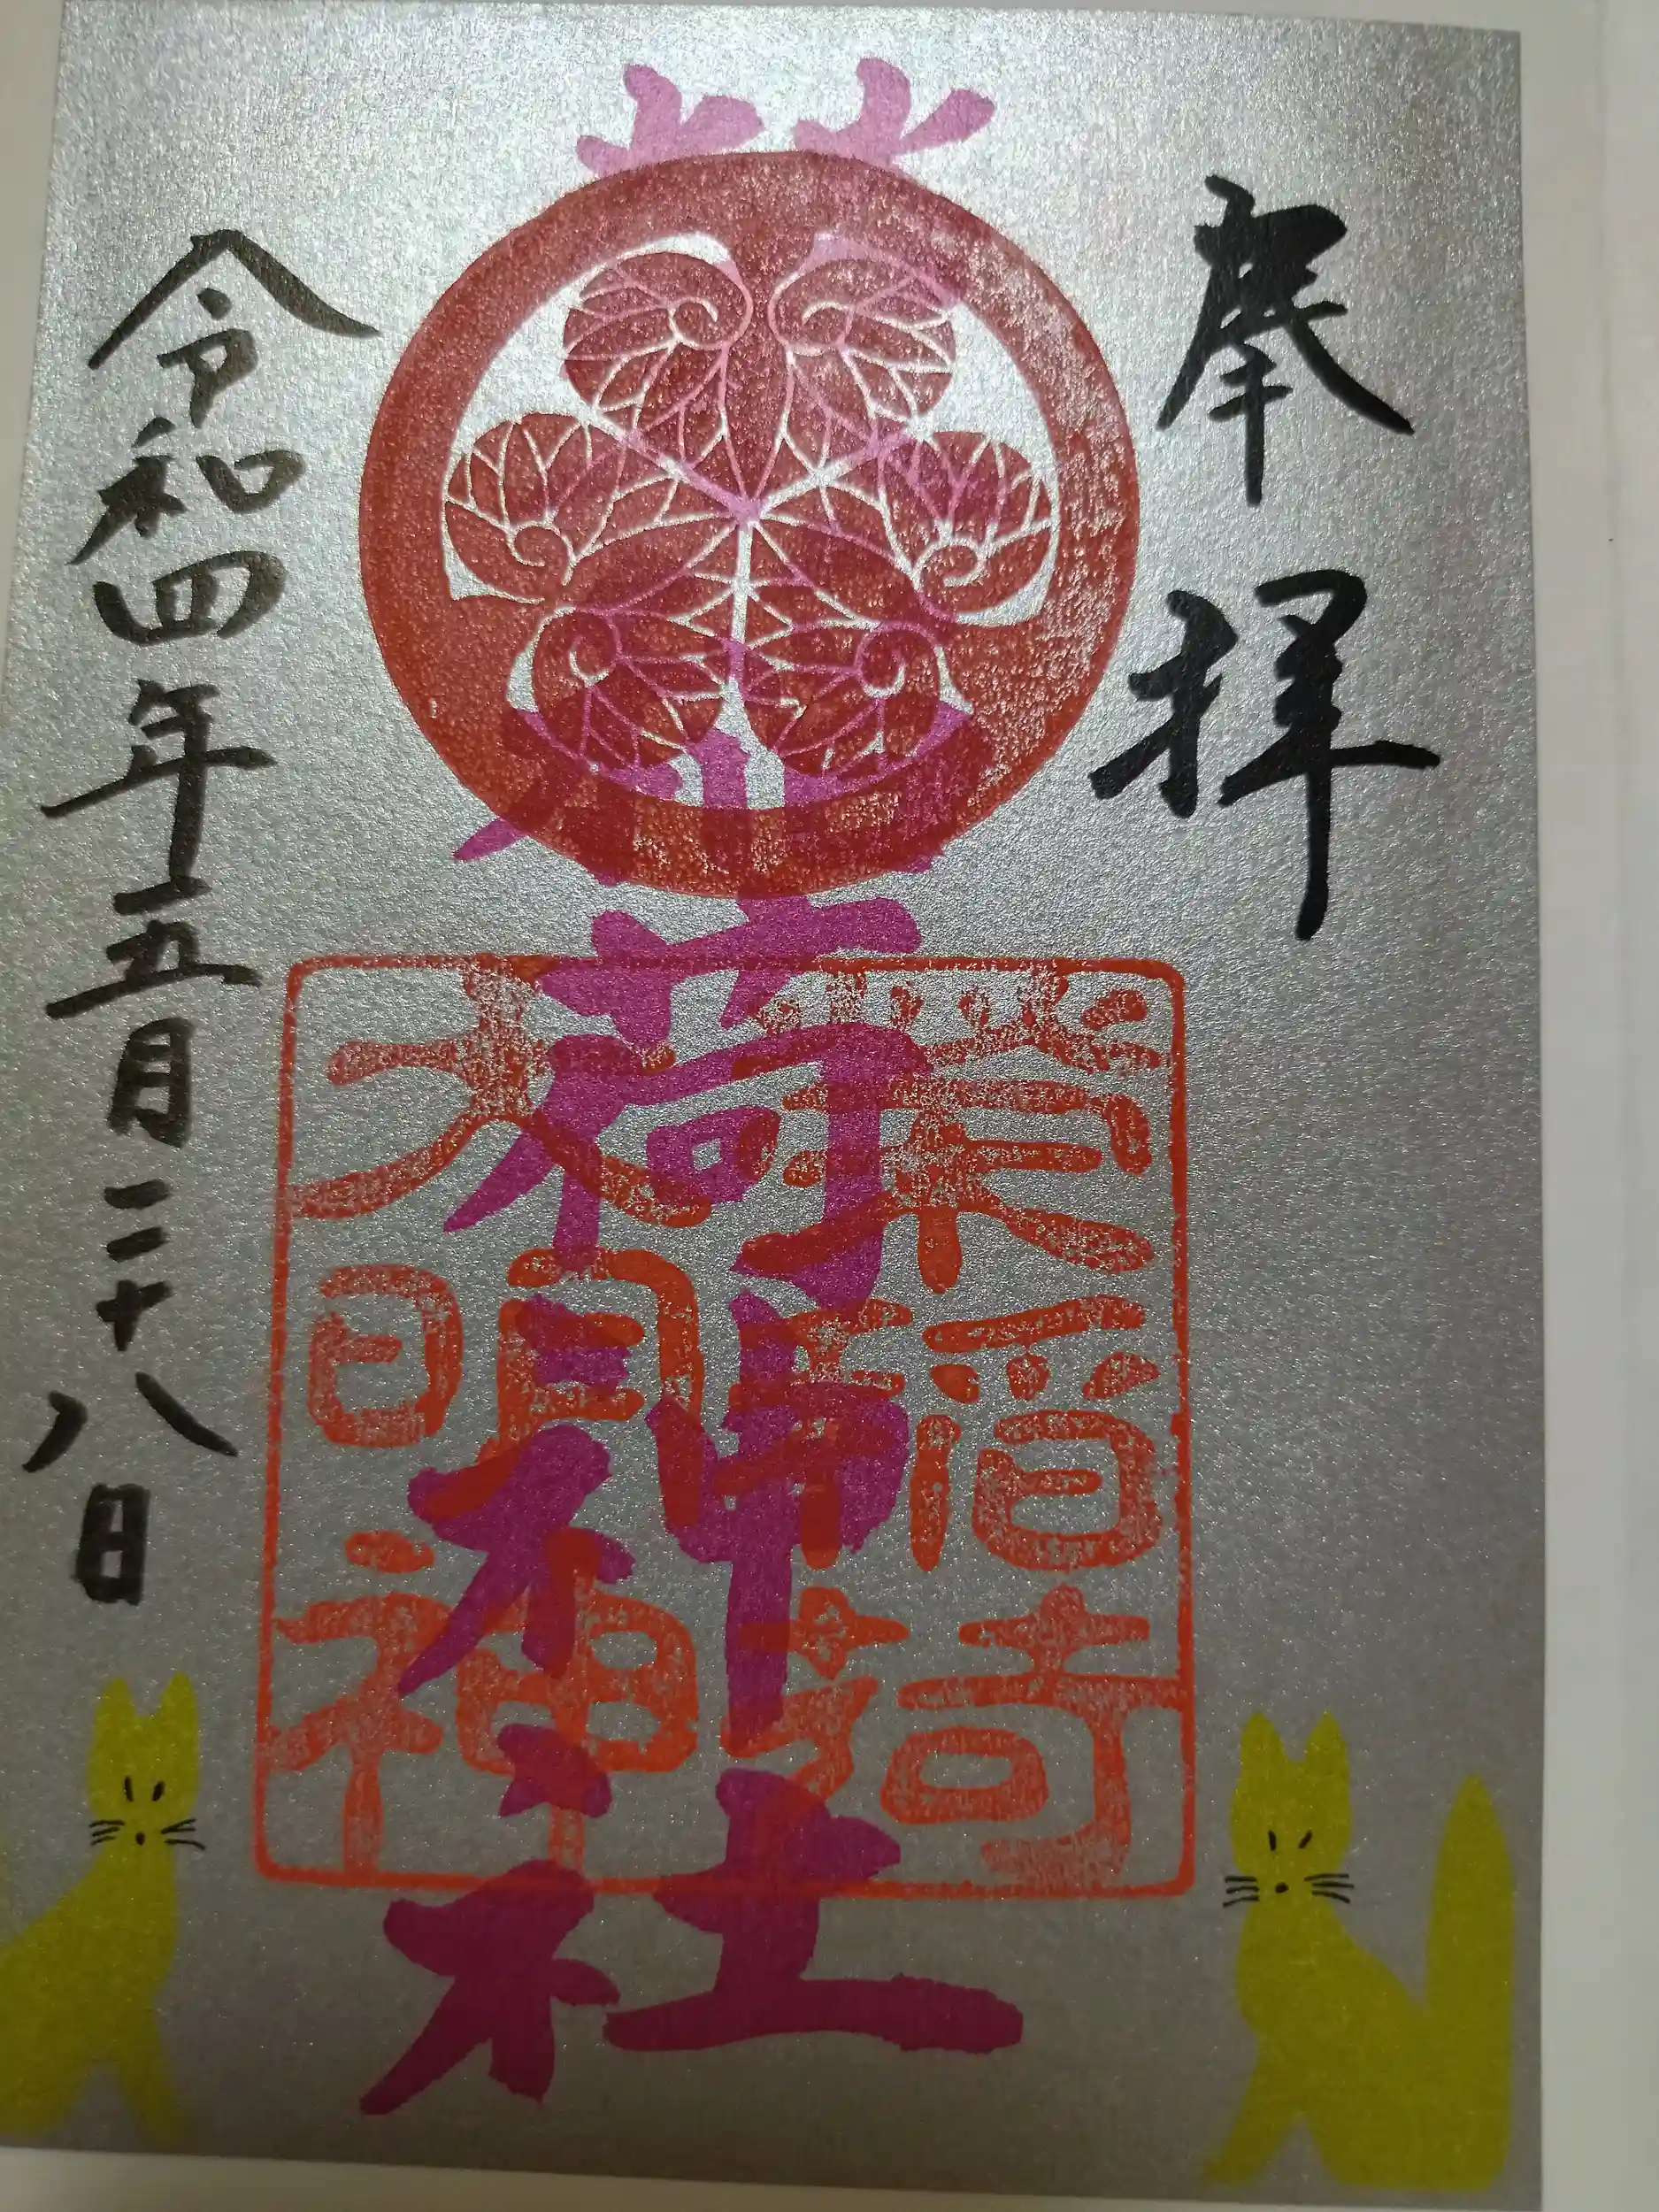 奉拝
榮稲荷神社
榮稲荷
大明神
令和四年五月二十八日